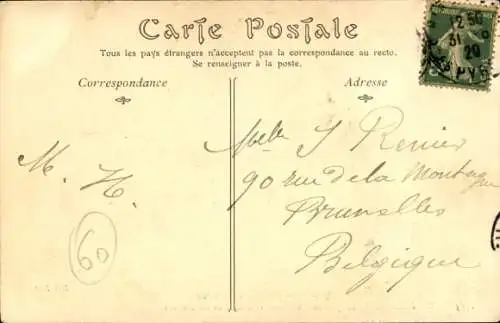 Carte Postale
Tous les pays étrangers n'acceptent pas la correspondance au recto.
Se renseigner à la poste.
Correspondance
Adresse
12 50
31
20
M. H.
60
Melle J Renier
90 rue de la Montagne
Bruxelles
Belgique